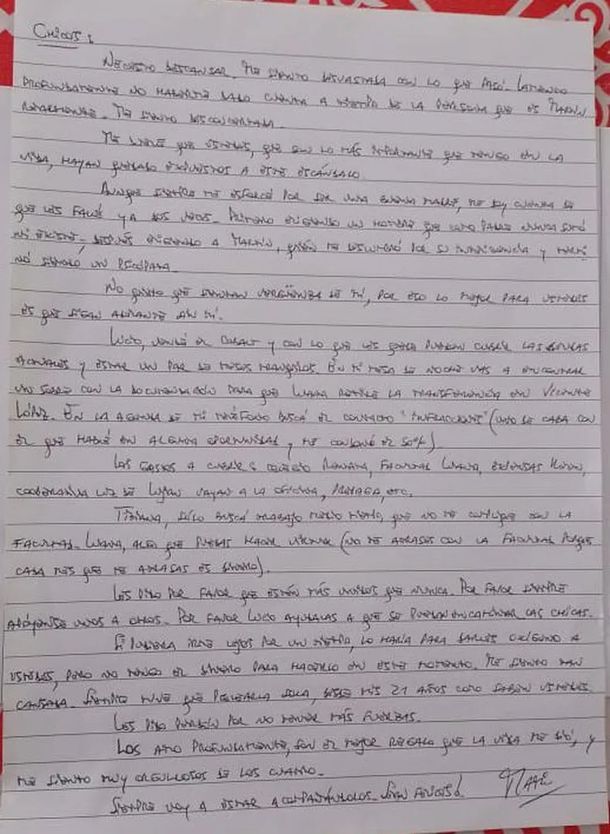 CHICOS:
NECESITO DESCANSAR. ME SIENTO DEVASTADA CON LO QUE PASÓ. LAMENTO
PROFUNDAMENTE NO HABERME DADO CUENTA A TIEMPO DE LA PERSONA QUE ES MARTÍN
REALMENTE. ME SIENTO DESCONCERTADA.
ME DUELE QUE USTEDES, QUE SON LO MÁS IMPORTANTE QUE TENGO EN LA
VIDA, HAYAN QUEDADO EXPUESTOS A ESTE ESCÁNDALO.
AUNQUE SIEMPRE ME ESFORCÉ POR SER UNA BUENA MADRE, ME DOY CUENTA DE
QUE LES FALLÉ YA DOS VECES. PRIMERO ELIGIENDO UN HOMBRE QUE COMO PADRE NUNCA
DESPUÉS ELIGIENDO A MARTÍN, QUIÉN ME DESLUMBRÓ POR SU INTELIGENCIA Y TERMI
NÓ SIENDO UN PSICÓPATA.
NO QUIERO QUE SIENTAN VERGÜENZA DE MÍ, POR ESO LO MEJOR PARA USTEDES
ES QUE SIGAN ADELANTE SIN MÍ.
LUCIO, VENDÉ EL COBALT Y CON LO QUE LES QUEDE PUEDEN CUBRIR LAS DEUDAS
ACTUALES Y ESTAR UN PAR DE MESES TRANQUILOS. EN MI MESA DE NOCHE VAS A ENCONTRAR
UN SOBRE CON LA DOCUMENTACIÓN PARA QUE LUANA RETIRE LA TRANSFERENCIA EN VICENTE
LÓPEZ. EN LA AGENDA DE MI TELÉFONO BUSCÁ EL CONTACTO "INFRACCIONES" (UNO DE CABA CON
EL QUE HABLÉ EN ALGUNA OPORTUNIDAD Y ME 50%)
LOS GASTOS A CUBRIR COLEGIO FACULTAD LUANA, EXPENSAS
COOPERATIVA LUZ DE LUJAN VAYAN A LA OFICINA, PREPAGA, ETC.
SÓLO BUSCÁ TRABAJO MEDIO TIEMPO, QUE NO TE COMPLIQUE CON LA
FACULTAD. LUANA, ALGO QUE PUEDAS HACER (NO TE ATRASES CON LA FACULTAD PORQUE
CADA MES QUE TE ATRASAS ES DINERO).
LES PIDO POR FAVOR QUE ESTÉN MÁS UNIDOS QUE NUNCA. POR FAVOR SIEMPRE
APÓYENSE UNOS A OTROS. POR FAVOR LUCIO AYUDALAS A QUE SE PUEDAN ENCAMINAR LAS CHICAS.
SI PUDIERA IRME LEJOS POR UN TIEMPO, LO HARÍA PARA DARLES OXÍGENO A
USTEDES, PERO NO TENGO EL DINERO PARA HACERLO EN ESTE MOMENTO. ME SIENTO TAN
CANSADA. SIEMPRE TUVE QUE PELEARLA SOLA, DESDE MIS 21 AÑOS COMO SABEN USTEDES.
LES PIDO PERDÓN POR NO TENER MÁS FUERZAS.
LOS AMO PROFUNDAMENTE, SON EL MEJOR REGALO QUE LA VIDA ME DIÓ, Y
ME SIENTO MUY ORGULLOSOS DE LOS CUATRO.
SIEMPRE VOY A ESTAR ACOMPAÑÁNDOLOS.